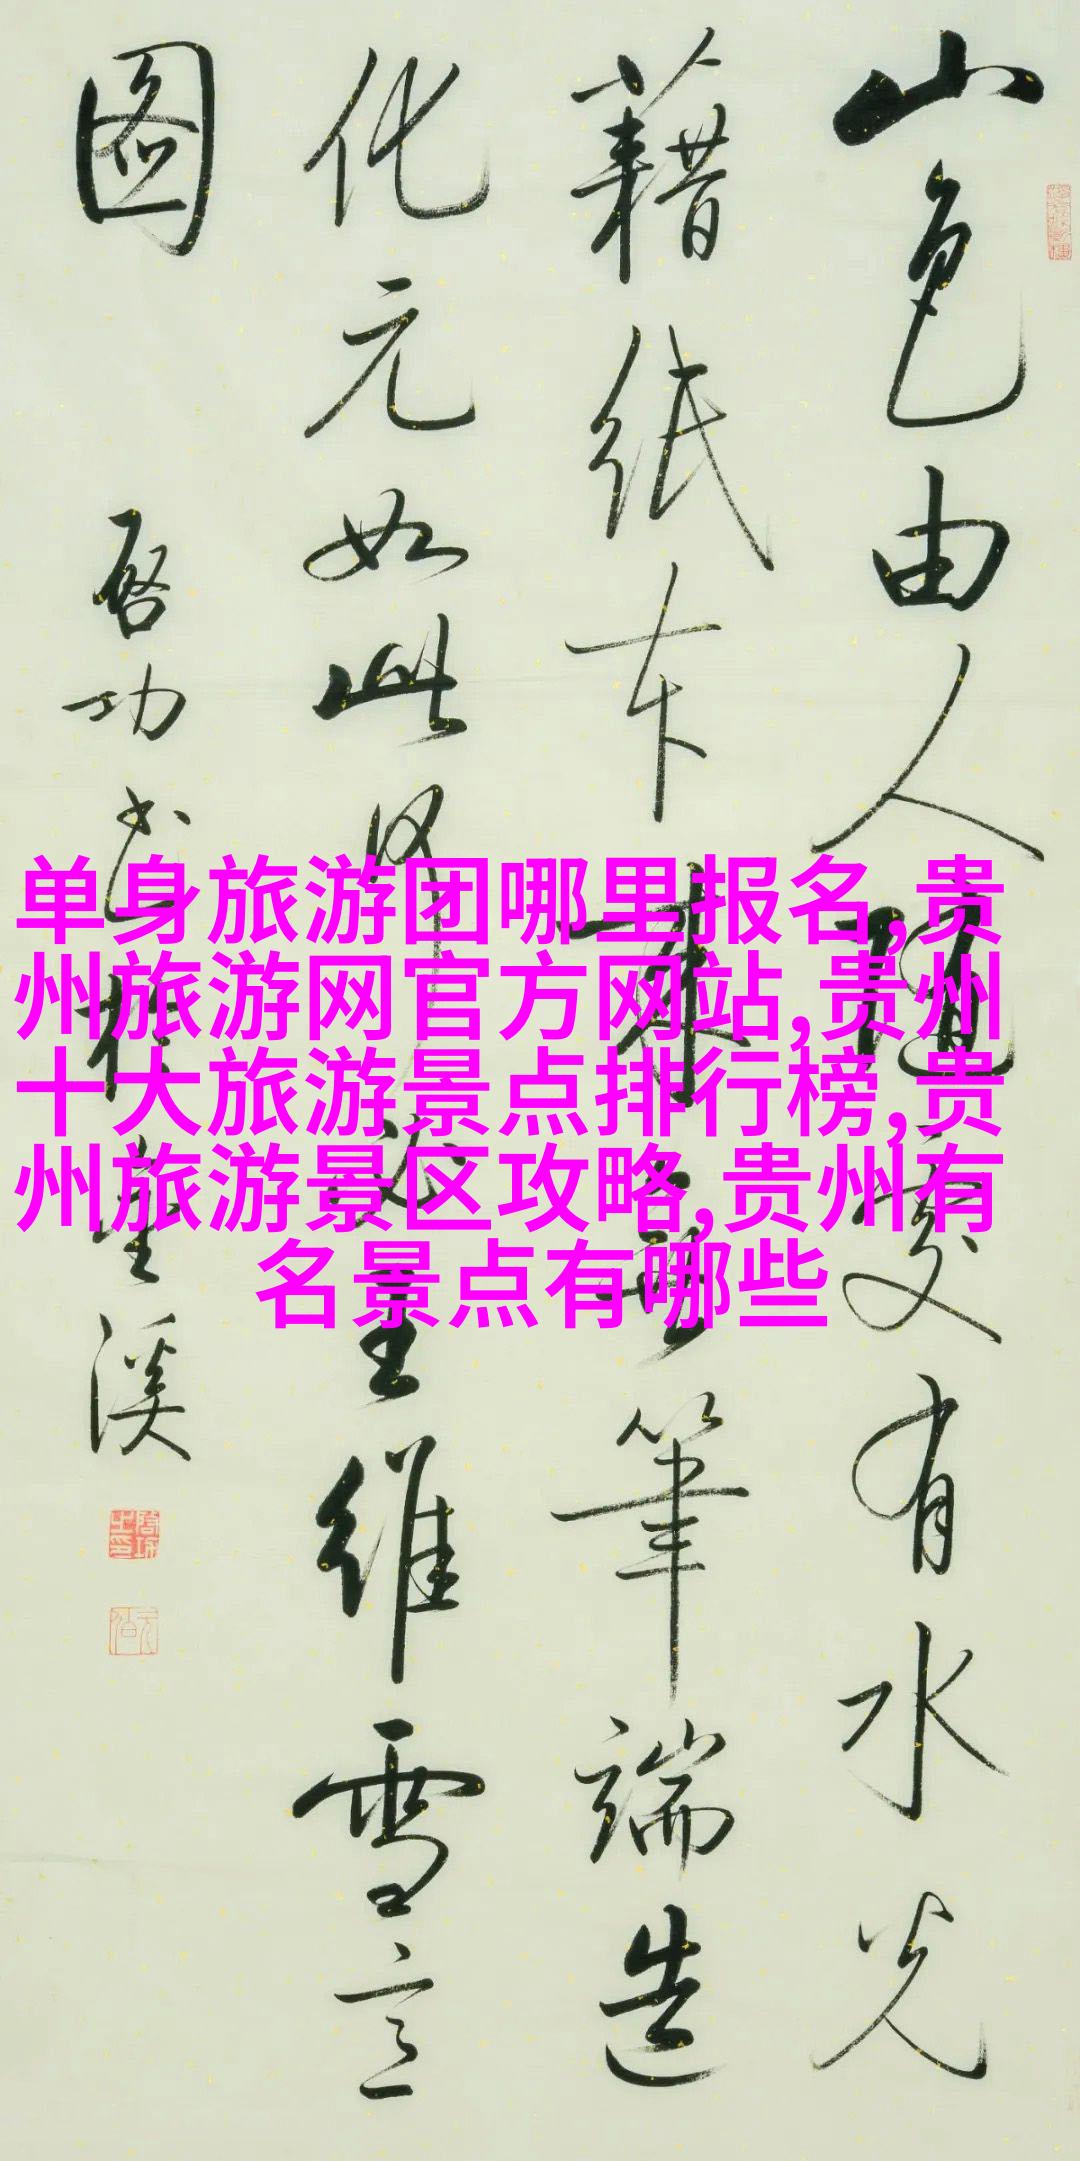 山色由人隨處有水光
藉紙本來無筆端造
化元如此王維雪意
圖
啓功書於溪
单身旅游团哪里报名,贵
州旅游网官方网站,贵州
十大旅游景点排行榜,贵
州旅游景区攻略,贵州有
名景点有哪些